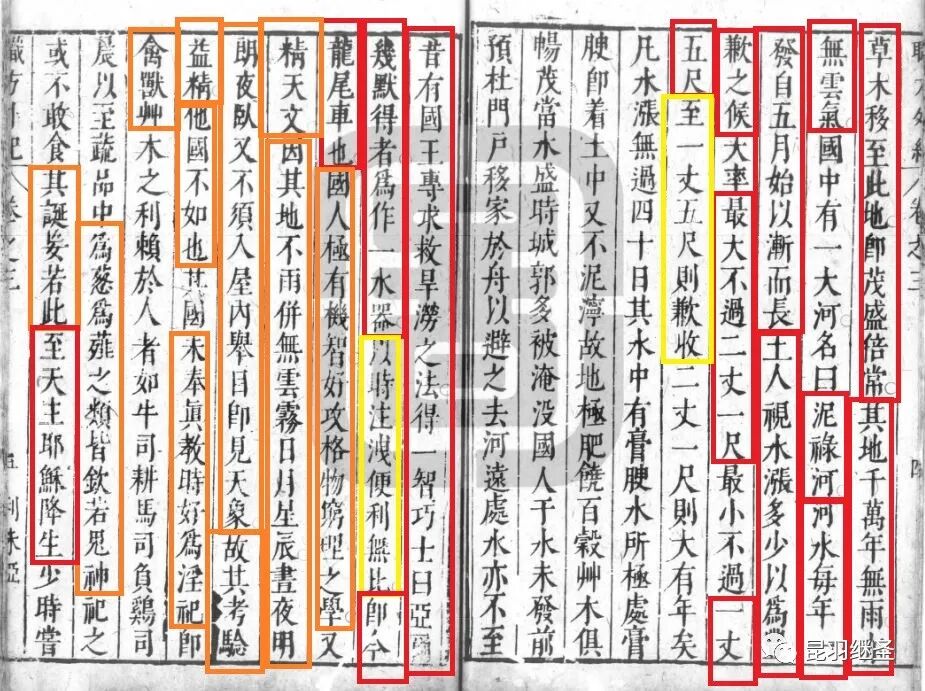 草木移至此地卽茂盛倍常其地千萬年無雨
無雲氣國中有一大河名曰泥祿河河水每年
發自五月始以漸而長土人視水漲多少以為
歉之候大率最大不過二丈一尺最小不過一丈
五尺至一丈五尺則歉收二丈一尺則大有年矣
凡水漲無過四十日其水中有膏腴水所極處膏
腴卽着土中又不泥濘故地極肥饒百穀艸木俱
暢茂當水盛時城郭多被淹没國人于水未發前
預杜門戶移家於舟以避之去河遠處水亦不至
昔有國王專求救旱澇之法得一智巧士曰亞爾
幾默得者為作一水器以時注洩便利無比卽今
龍尾車也國人極有機智好攻格物窮理之學又
精天文因其地不雨併無雲霧日月星辰晝夜明
朗夜臥又不須入屋內舉目卽見天象故其考驗
益精他國不如也其國未奉眞教時好爲淫祀卽
禽獸艸木之利賴於人者如牛司耕馬司負鷄司
晨以至蔬品中爲葱爲薤之類皆欽若鬼神祀之
或不敢食其誕妄若此至天主耶穌降生少時嘗
職方外紀 卷之三 利未亞
昆羽继圣